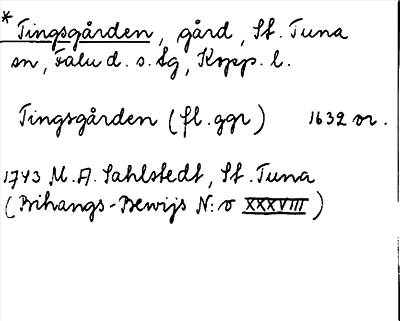 * Tingsgården, gård, St. Tuna
sn, Falu d. s. tg, Kopp. l.
Tingsgården (fl. ggr) 1632 or.
1743 M. A. Sahlstedt, St. Tuna
(Bihangs-Bewijs N:o XXXVIII)